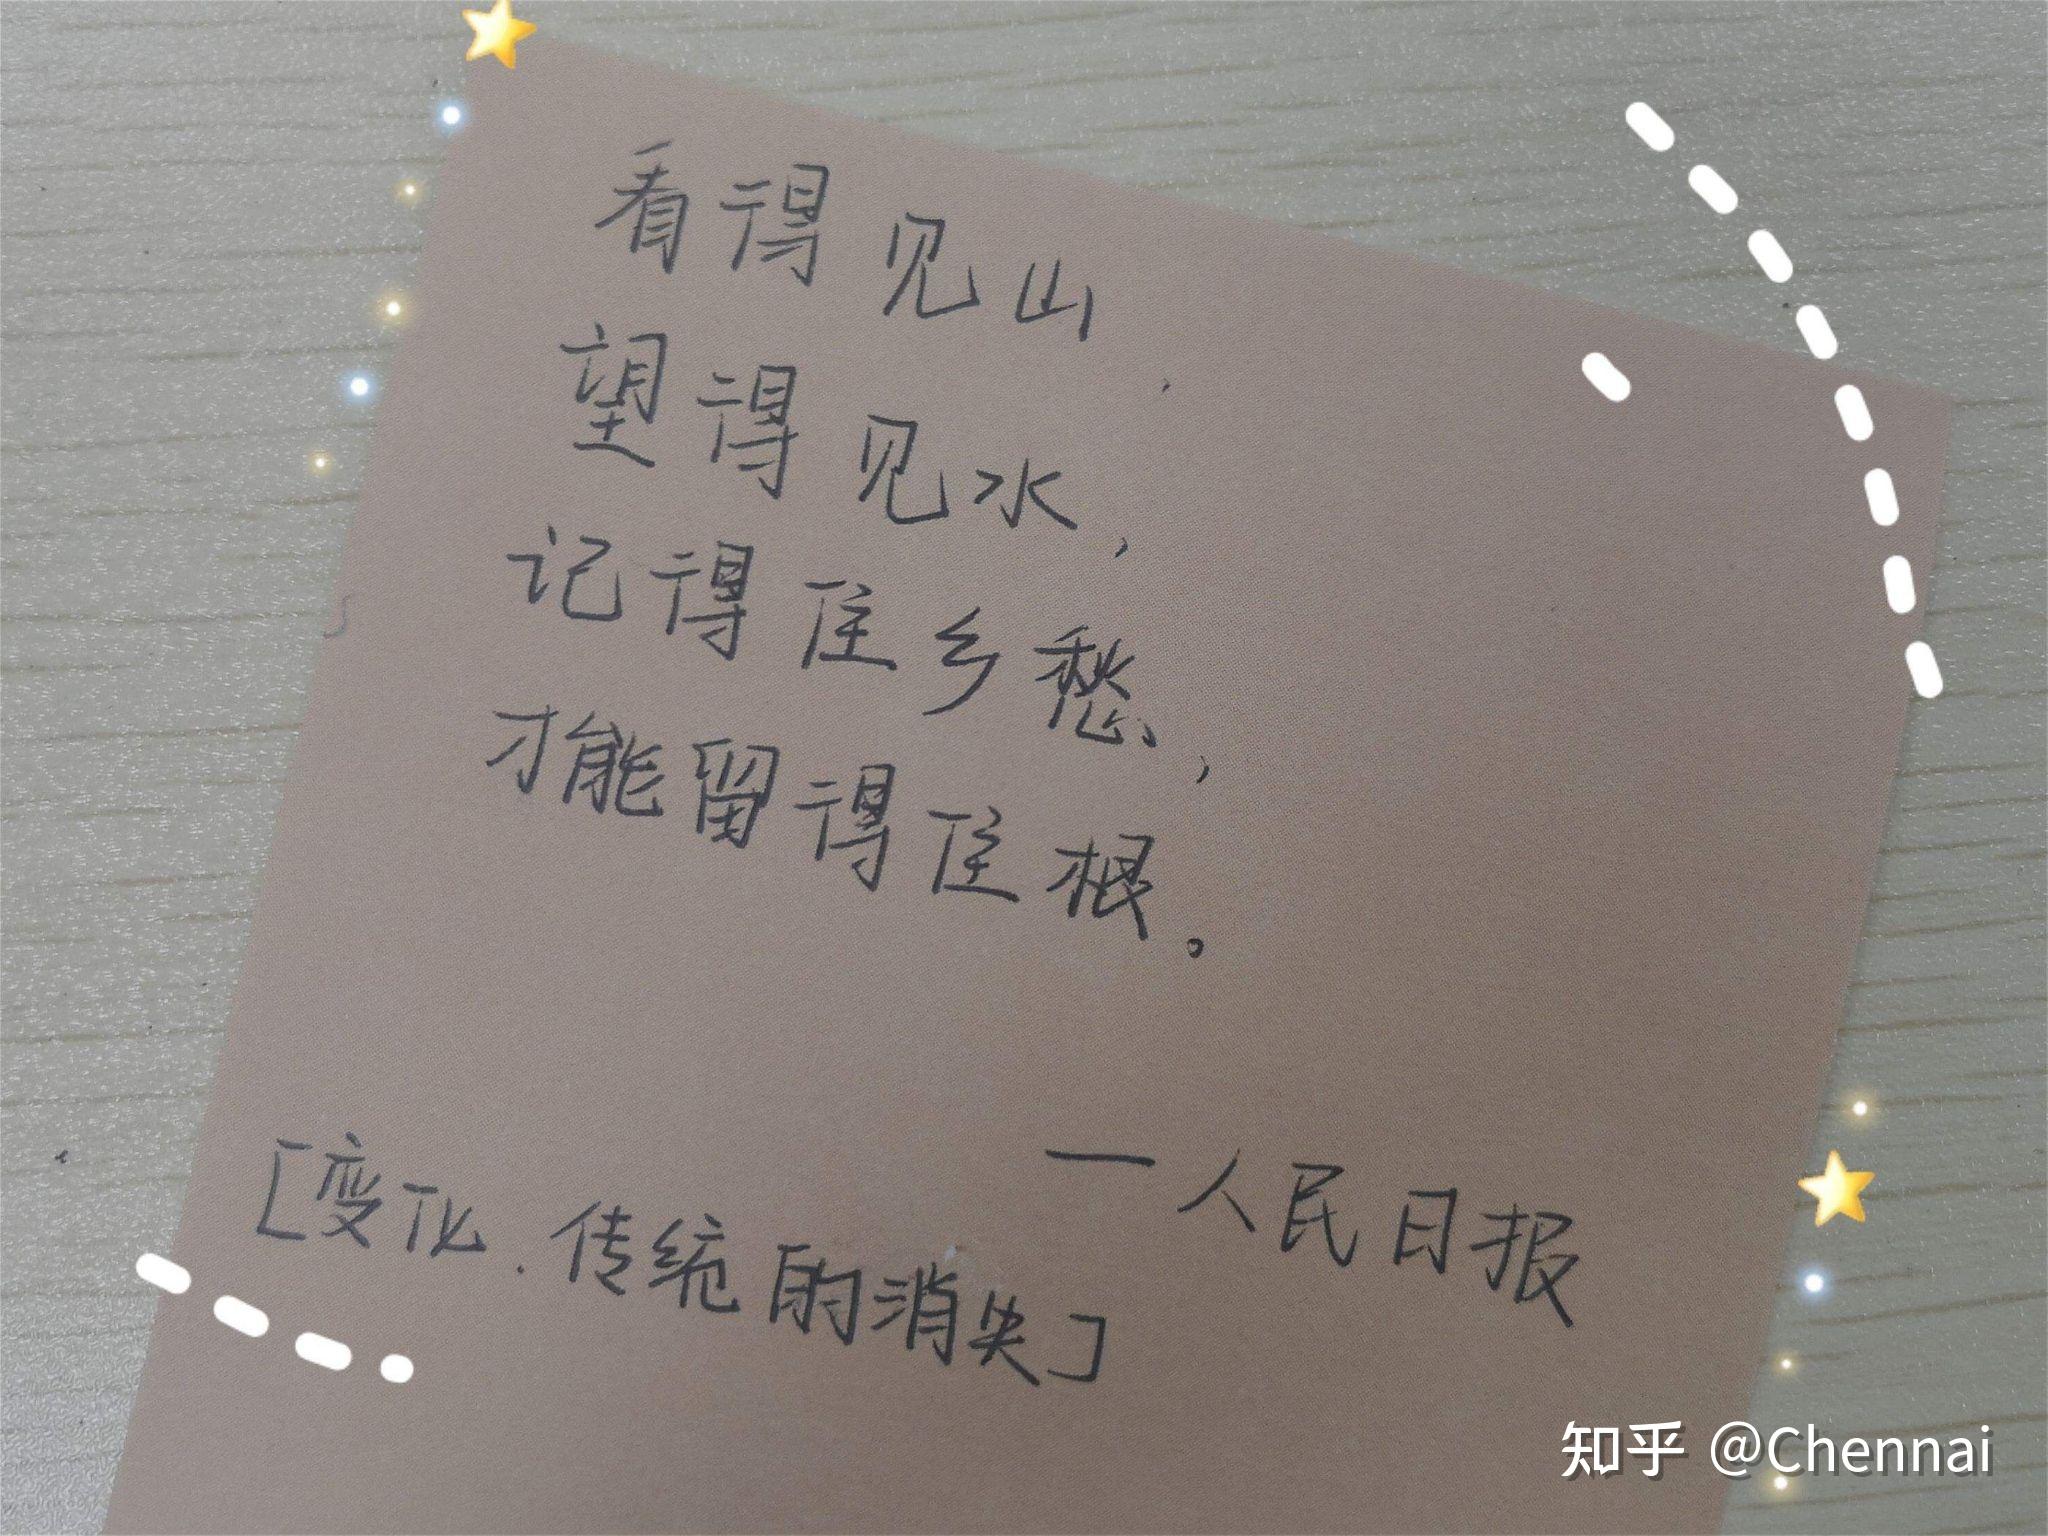 看得见山,
望得见水,
记得住乡愁,
才能留得住根。
—人民日报
[变化.传统的消失]
知乎 @Chennai